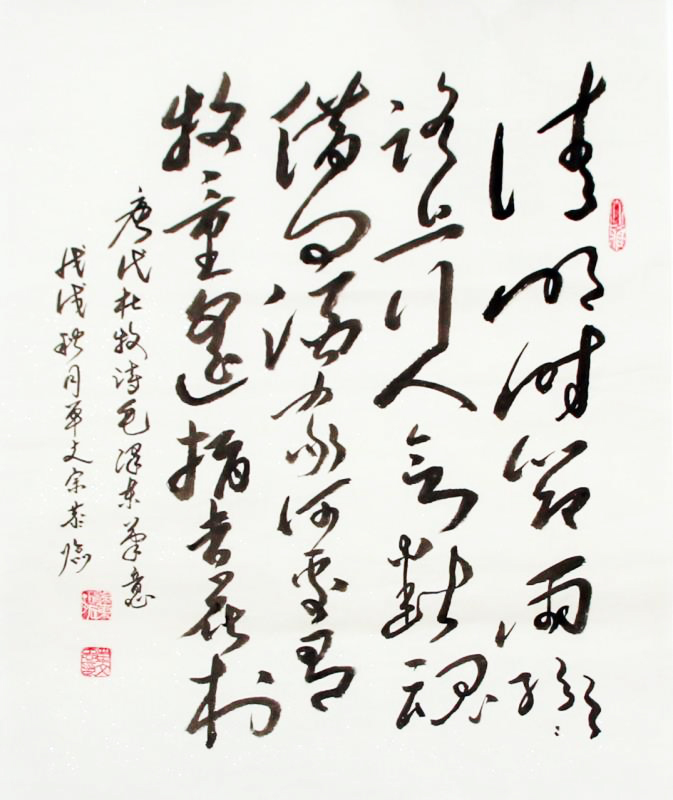 清明时节雨纷纷
路上行人欲断魂
借问酒家何处有
牧童遥指杏花村
唐代杜牧诗毛泽东笔意
戊戌秋月文宗恭临